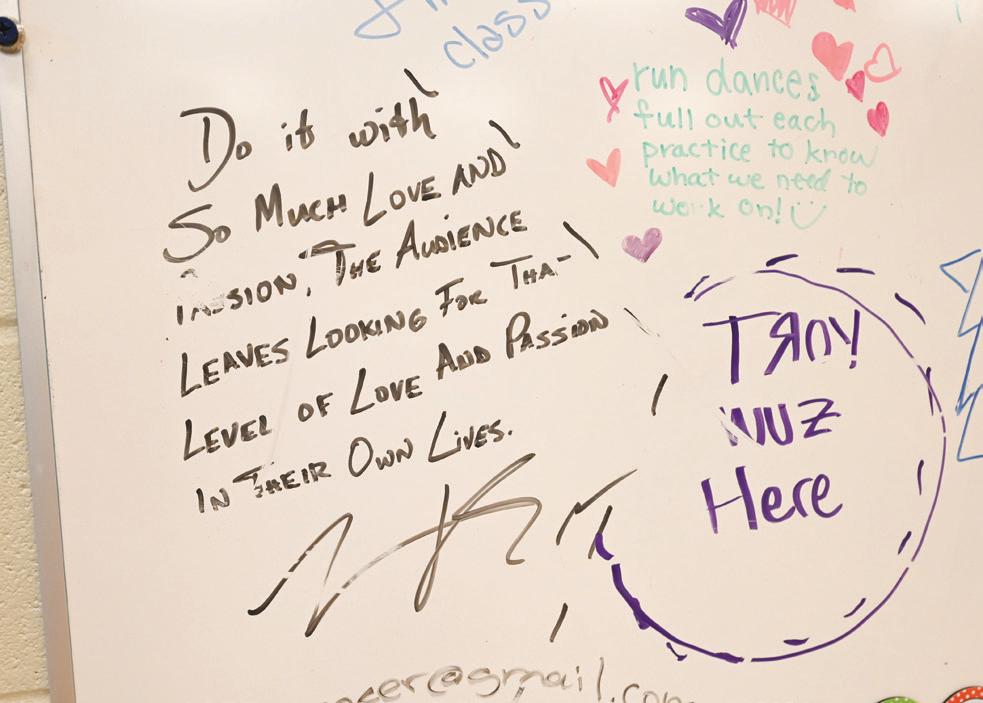 class
Do it with
So Much Love AND
PASSION, THE AUDIENCE
LEAVES LOOKING FOR THAT
LEVEL OF LOVE AND PASSION
IN THEIR OWN LIVES.
run dances
full out each
practice to know
what we need to
work on!
TROY
WUZ
Here
ncer@gmail.com